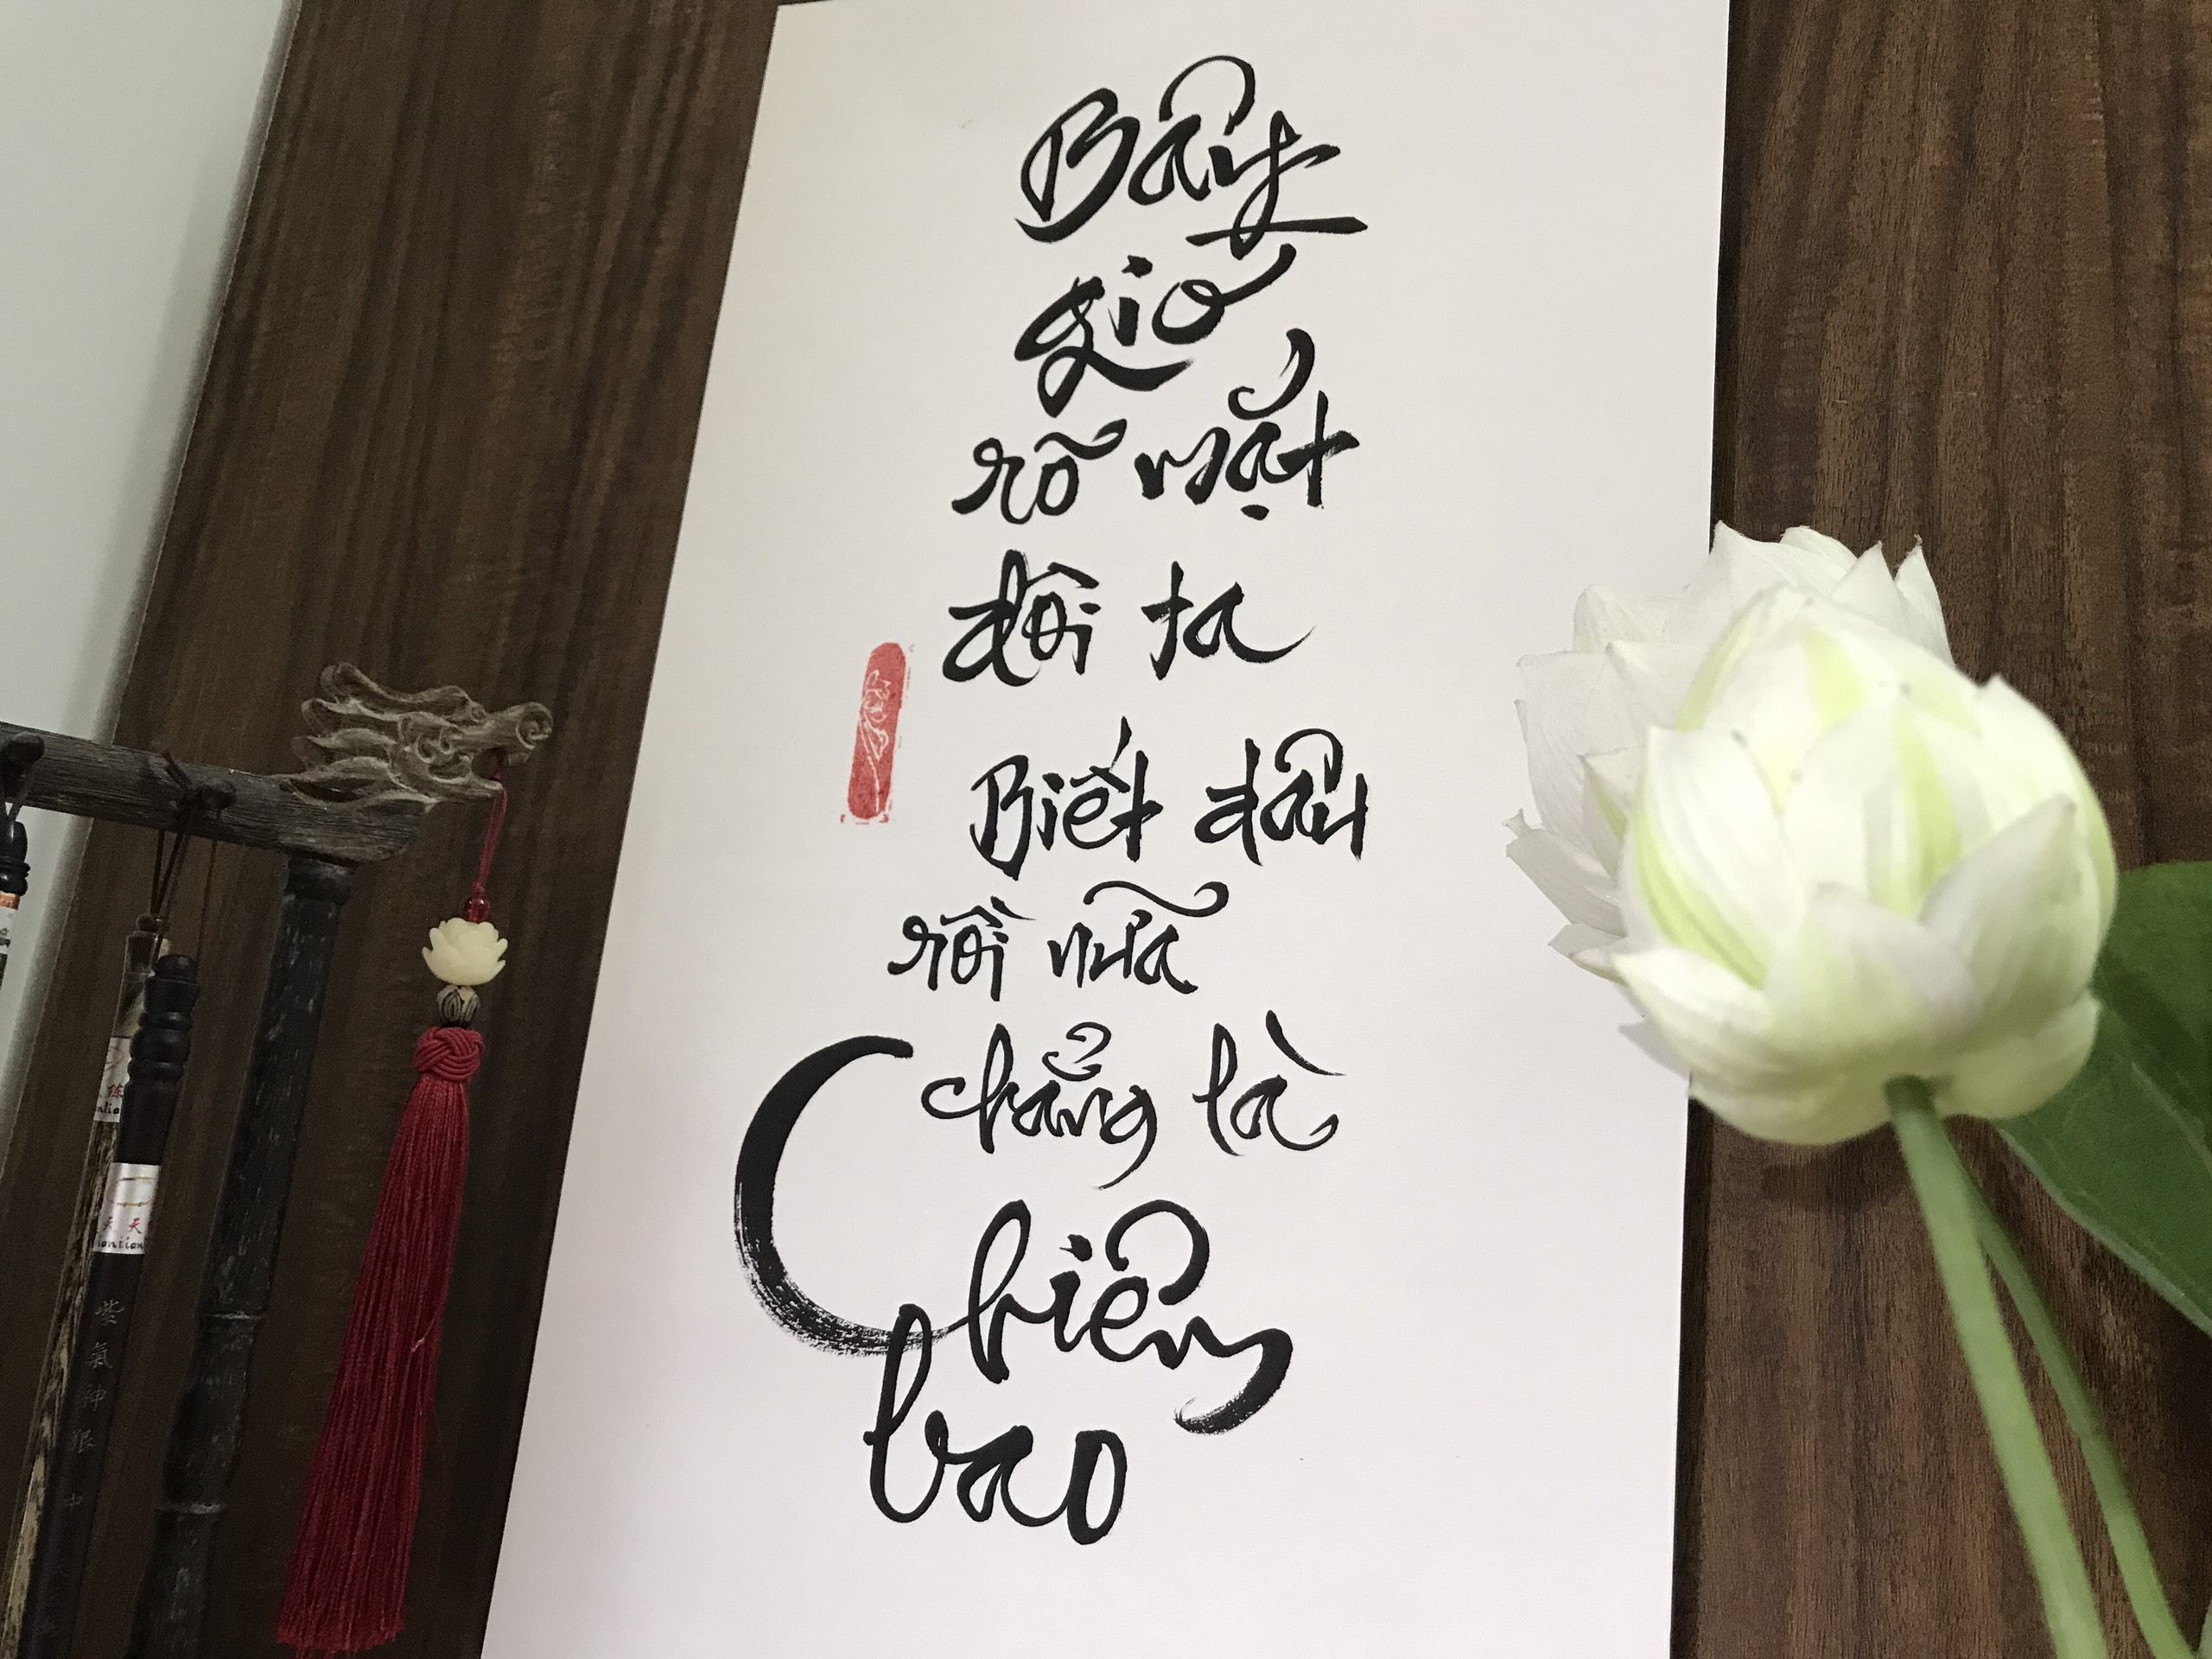 Bây
giờ
rõ mặt
đôi ta
Biết đâu
rồi nữa
chẳng là
Chiêm
bao
紫氣神